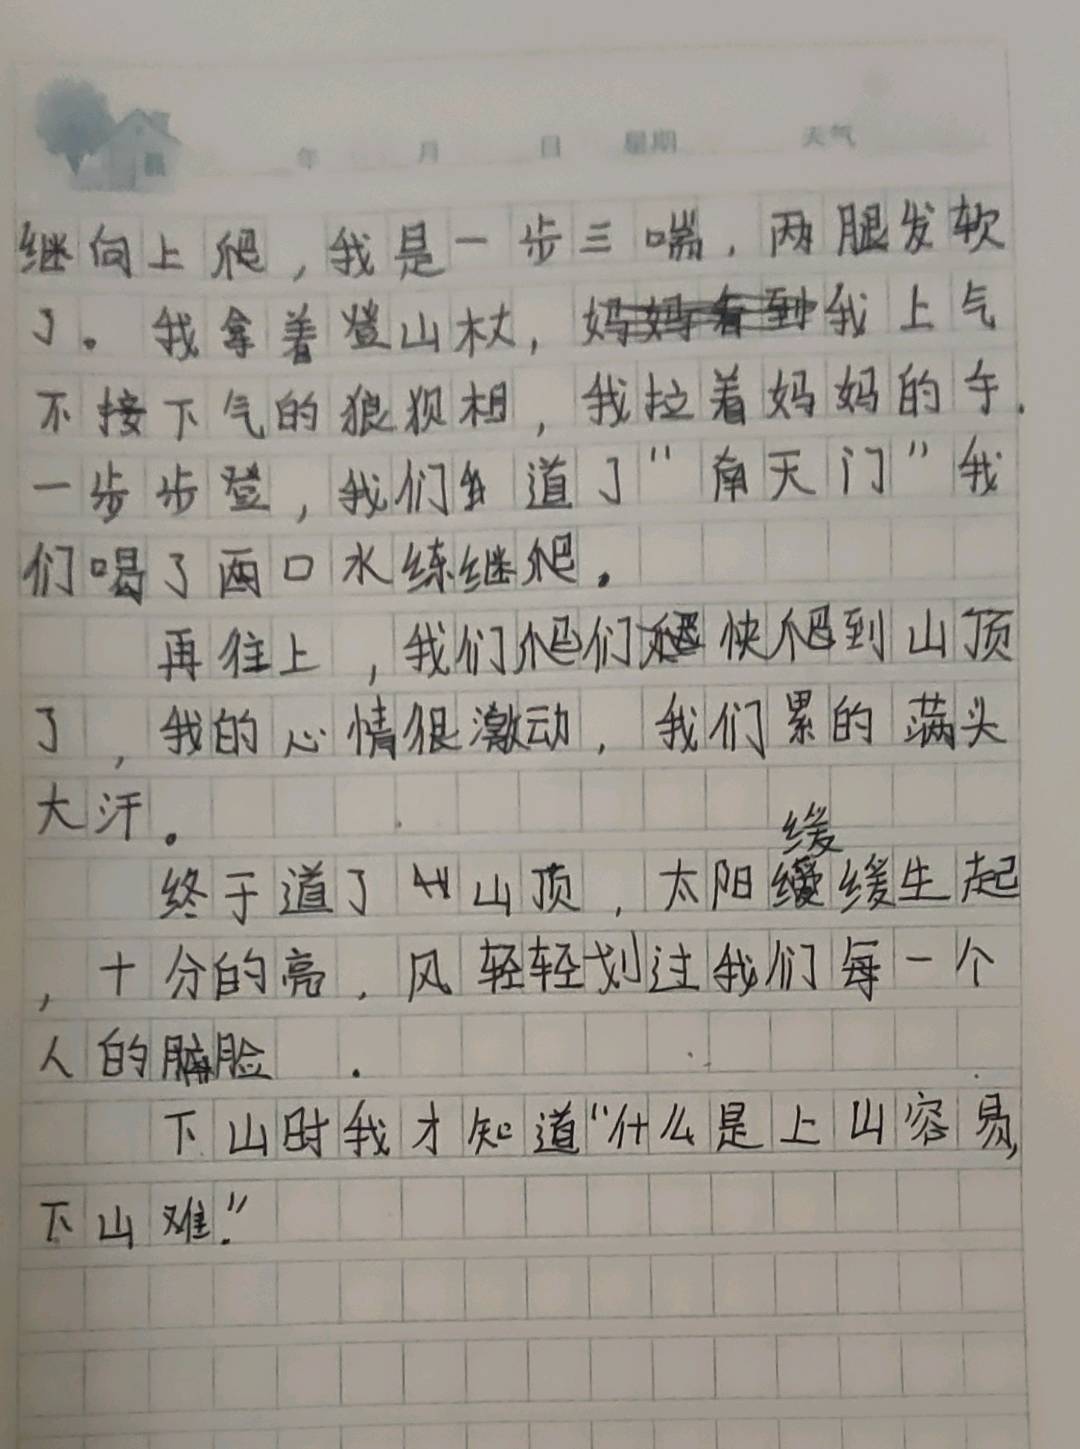 年 月 日 星期 天气
继向上爬,我是一步三喘,两腿发软
了。我拿着登山杖,我上气
不接下气的狼狈相,我拉着妈妈的手,
一步步登,我们道了“南天门”我
们喝了两口水练继爬。
再往上,我们爬们快爬到山顶
了,我的心情很激动,我们累的满头
大汗。
缓
终于道了山顶,太阳缓生起
,十分的亮,风轻轻划过我们每一个
人的脸.
下山时我才知道“什么是上山容易,
下山难.”